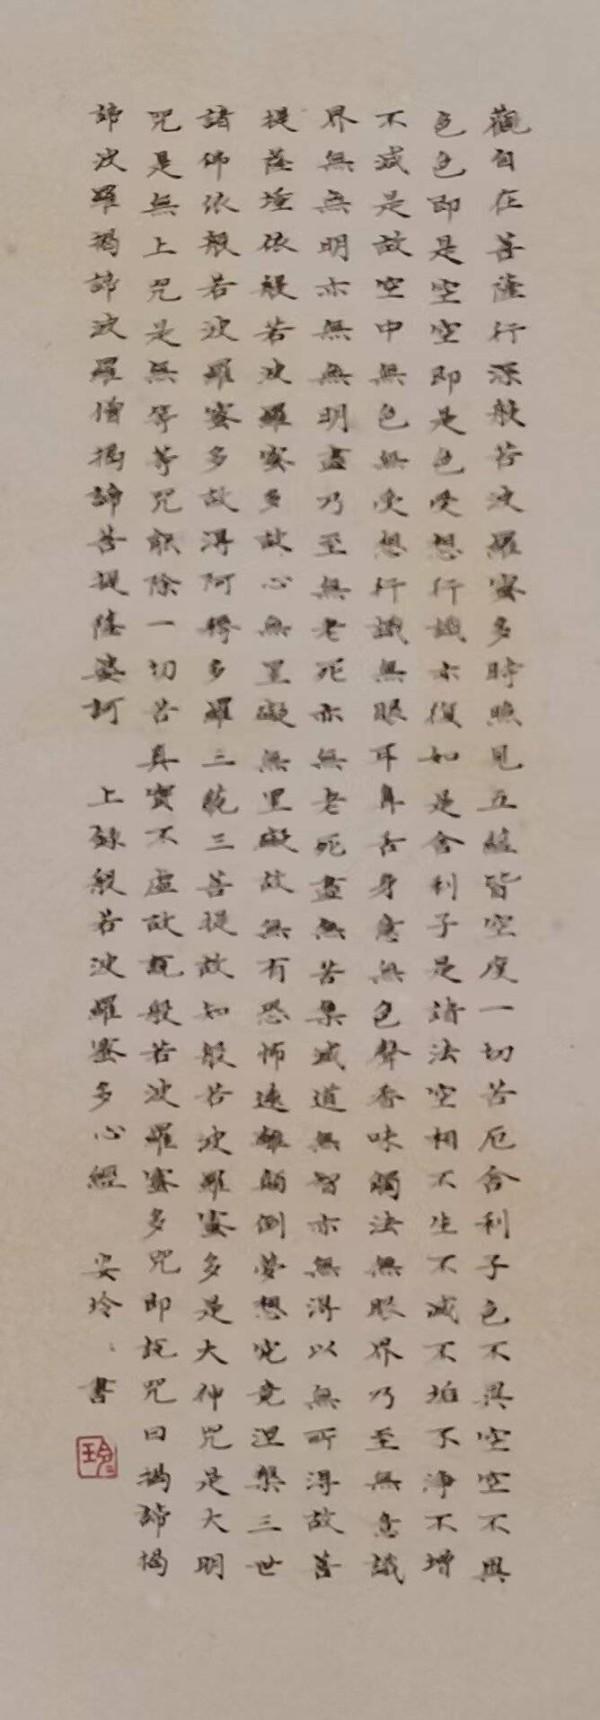 觀自在菩薩行深般若波羅蜜多時照見五蘊皆空度一切苦厄舍利子色不異空空不異
色色即是空空即是色受想行識亦復如是舍利子是諸法空相不生不滅不垢不淨不增
不減是故空中無色無受想行識無眼耳鼻舌身意無色聲香味觸法無眼界乃至無意識
界無無明亦無無明盡乃至無老死亦無老死盡無苦集滅道無智亦無得以無所得故菩
提薩埵依般若波羅蜜多故心無罣礙無罣礙故無有恐怖遠離顛倒夢想究竟涅槃三世
諸佛依般若波羅蜜多故得阿耨多羅三藐三菩提故知般若波羅蜜多是大神咒是大明
咒是無上咒是無等等咒能除一切苦真實不虛故說般若波羅蜜多咒即說咒曰揭諦揭
諦波羅揭諦波羅僧揭諦菩提薩婆訶 上錄般若波羅蜜多心經 安玲、書